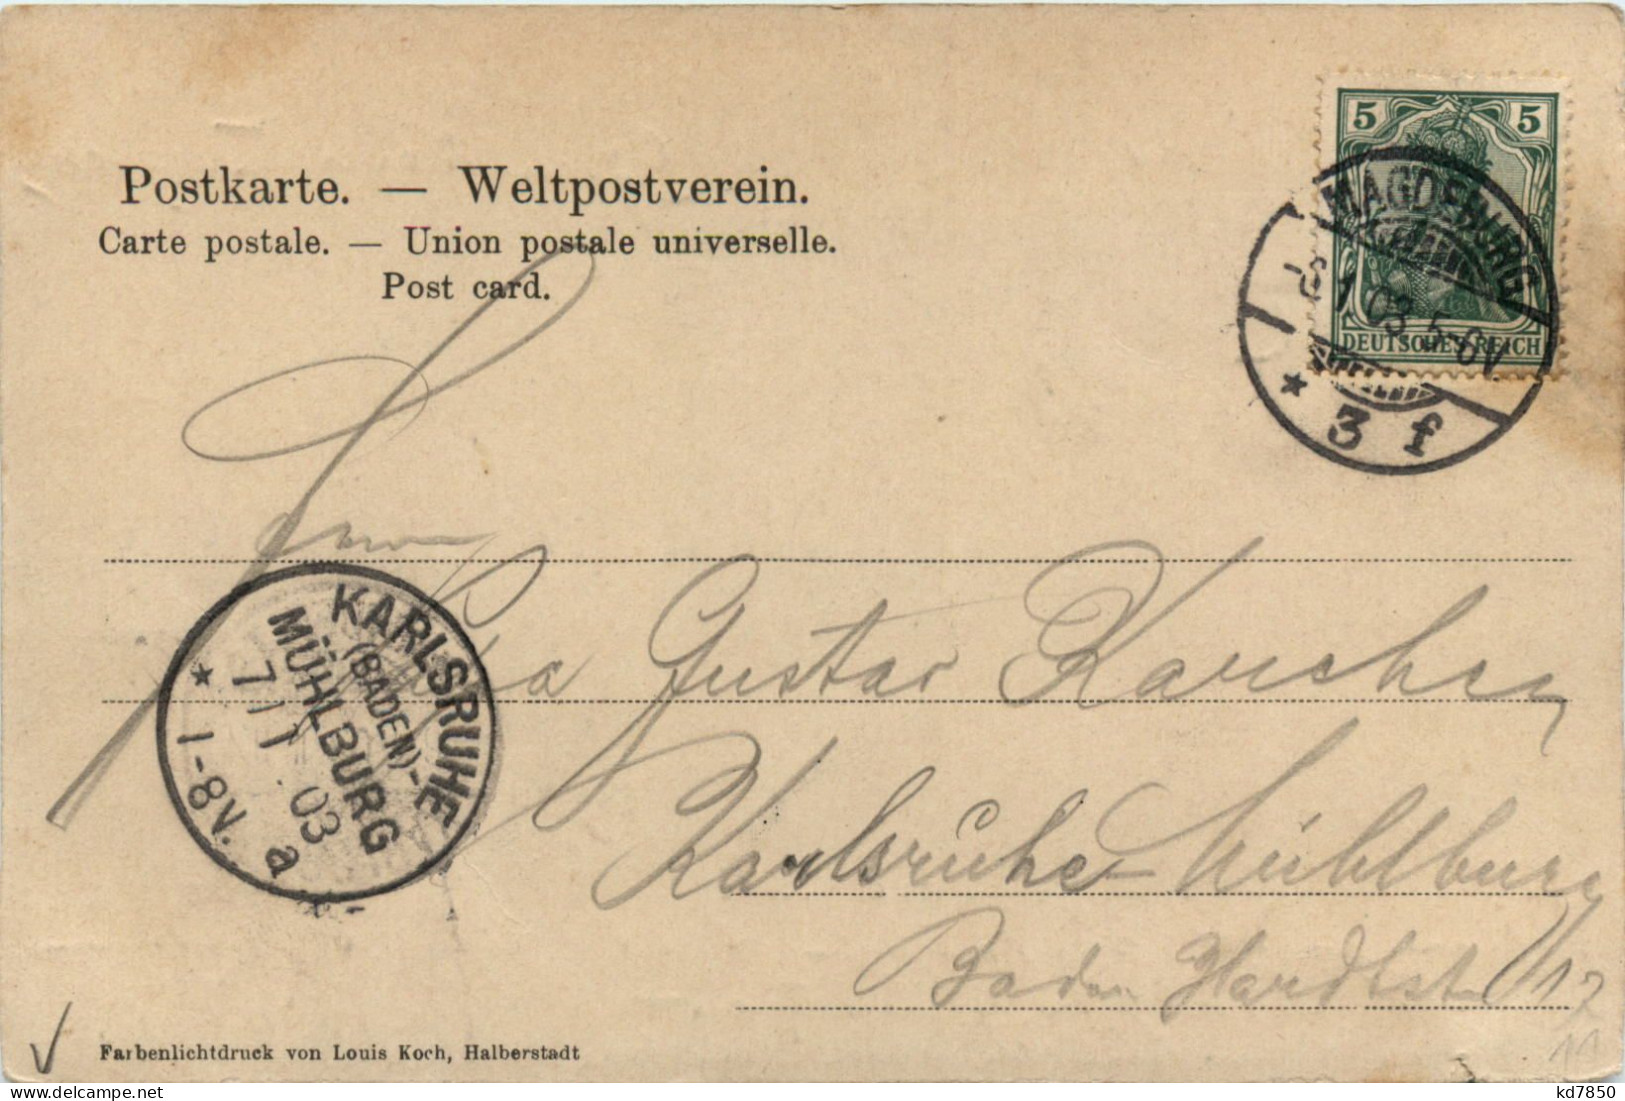 Postkarte. — Weltpostverein.
Carte postale. — Union postale universelle.
Post card.
5 5
DEUTSCHES REICH
MAGDEBURG
1.03. 5-6V.
* 3 f
KARLSRUHE
(BADEN)-
MÜHLBURG
7/1.03
* 1-8V. a
Gustav Karcher
Karlsruhe-Mühlburg
Baden Hardtstr. 17
11
Farbenlichtdruck von Louis Koch, Halberstadt
kd7850